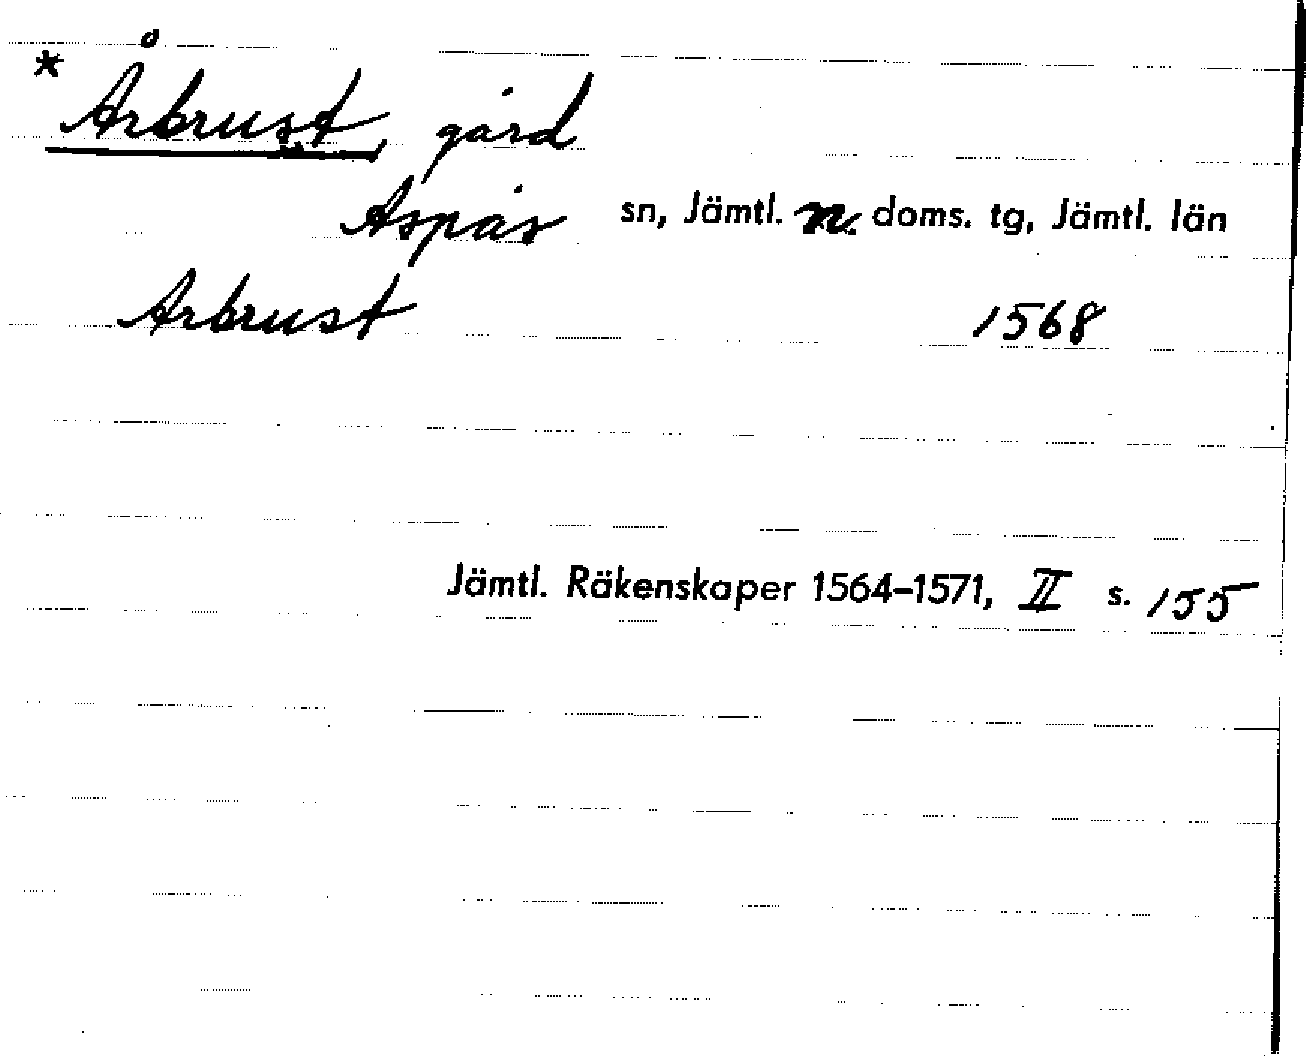 * Årbrust, gård
Aspås sn, Jämtl. n. doms. tg, Jämtl. län
Arbrust 1568
Jämtl. Räkenskaper 1564–1571, II s. 155